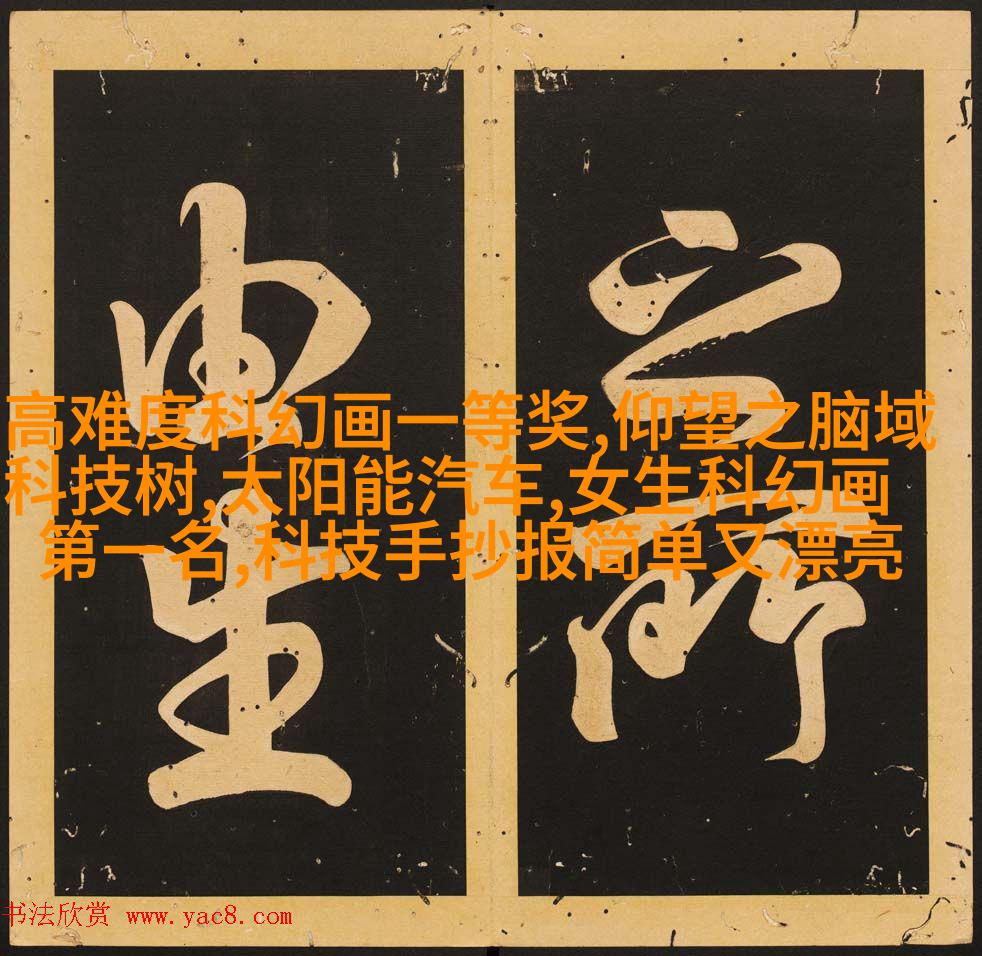 之所
由生
高难度科幻画一等奖,仰望之脑域
科技树,太阳能汽车,女生科幻画
第一名,科技手抄报简单又漂亮
书法欣赏 www.yac8.com